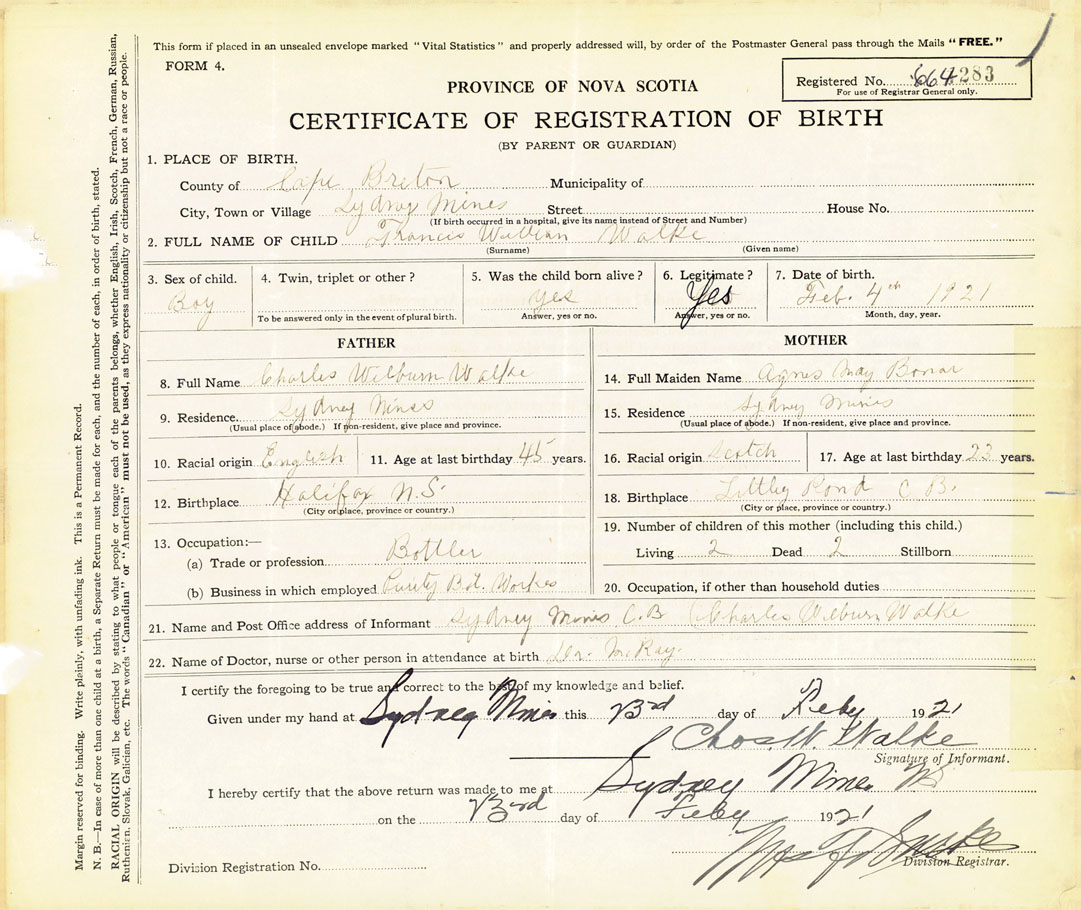 This form if placed in an unsealed envelope marked "Vital Statistics" and properly addressed will, by order of the Postmaster General pass through the Mails "FREE."
FORM 4.
Registered No. 664283
For use of Registrar General only.
PROVINCE OF NOVA SCOTIA
CERTIFICATE OF REGISTRATION OF BIRTH
(BY PARENT OR GUARDIAN)
1. PLACE OF BIRTH.
County of Cape Breton Municipality of
City, Town or Village Sydney Mines Street House No.
(If birth occurred in a hospital, give its name instead of Street and Number)
2. FULL NAME OF CHILD Francis William Walke
(Surname) (Given name)
3. Sex of child. 4. Twin, triplet or other? 5. Was the child born alive? 6. Legitimate? 7. Date of birth.
Boy yes Yes Feb. 4th 1921
To be answered only in the event of plural birth. Answer, yes or no. Answer, yes or no. Month, day, year.
FATHER
8. Full Name Charles Wilburn Walke
9. Residence. Sydney Mines
(Usual place of abode.) If non-resident, give place and province.
10. Racial origin English 11. Age at last birthday 45 years.
12. Birthplace Halifax N.S.
(City or place, province or country.)
13. Occupation:—
(a) Trade or profession Bottler
(b) Business in which employed Purity Bot. Workes
MOTHER
14. Full Maiden Name Agnes May Bonar
15. Residence Sydney Mines
(Usual place of abode.) If non-resident, give place and province.
16. Racial origin Scotch 17. Age at last birthday 22 years.
18. Birthplace Pond C.B.
(City or place, province or country.)
19. Number of children of this mother (including this child.)
Living 2 Dead 2 Stillborn
20. Occupation, if other than household duties
21. Name and Post Office address of Informant Sydney Mines C.B. Charles Wilburn Walke
22. Name of Doctor, nurse or other person in attendance at birth Dr. McKay.
I certify the foregoing to be true and correct to the best of my knowledge and belief.
Given under my hand at Sydney Mines this 23rd day of Feby 1921
Chas. W. Walke
Signature of Informant.
I hereby certify that the above return was made to me at Sydney Mines NS
on the 23rd day of Feby 1921
Division Registrar.
Division Registration No.
Margin reserved for binding. Write plainly, with unfading ink. This is a Permanent Record.
N. B.—In case of more than one child at a birth, a Separate Return must be made for each, and the number of each, in order of birth, stated.
RACIAL ORIGIN will be described by stating to what people or tongue each of the parents belongs, whether English, Irish, Scotch, French, German, Russian,
Ruthenian, Slovak, Galician, etc. The words "Canadian" or "American" must not be used, as they express nationality or citizenship but not a race or people.